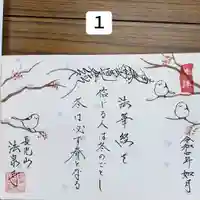 1
法華経を
信じる人は冬のごとし
冬は必ず春となる
令和五年 如月
長光山
法泉寺